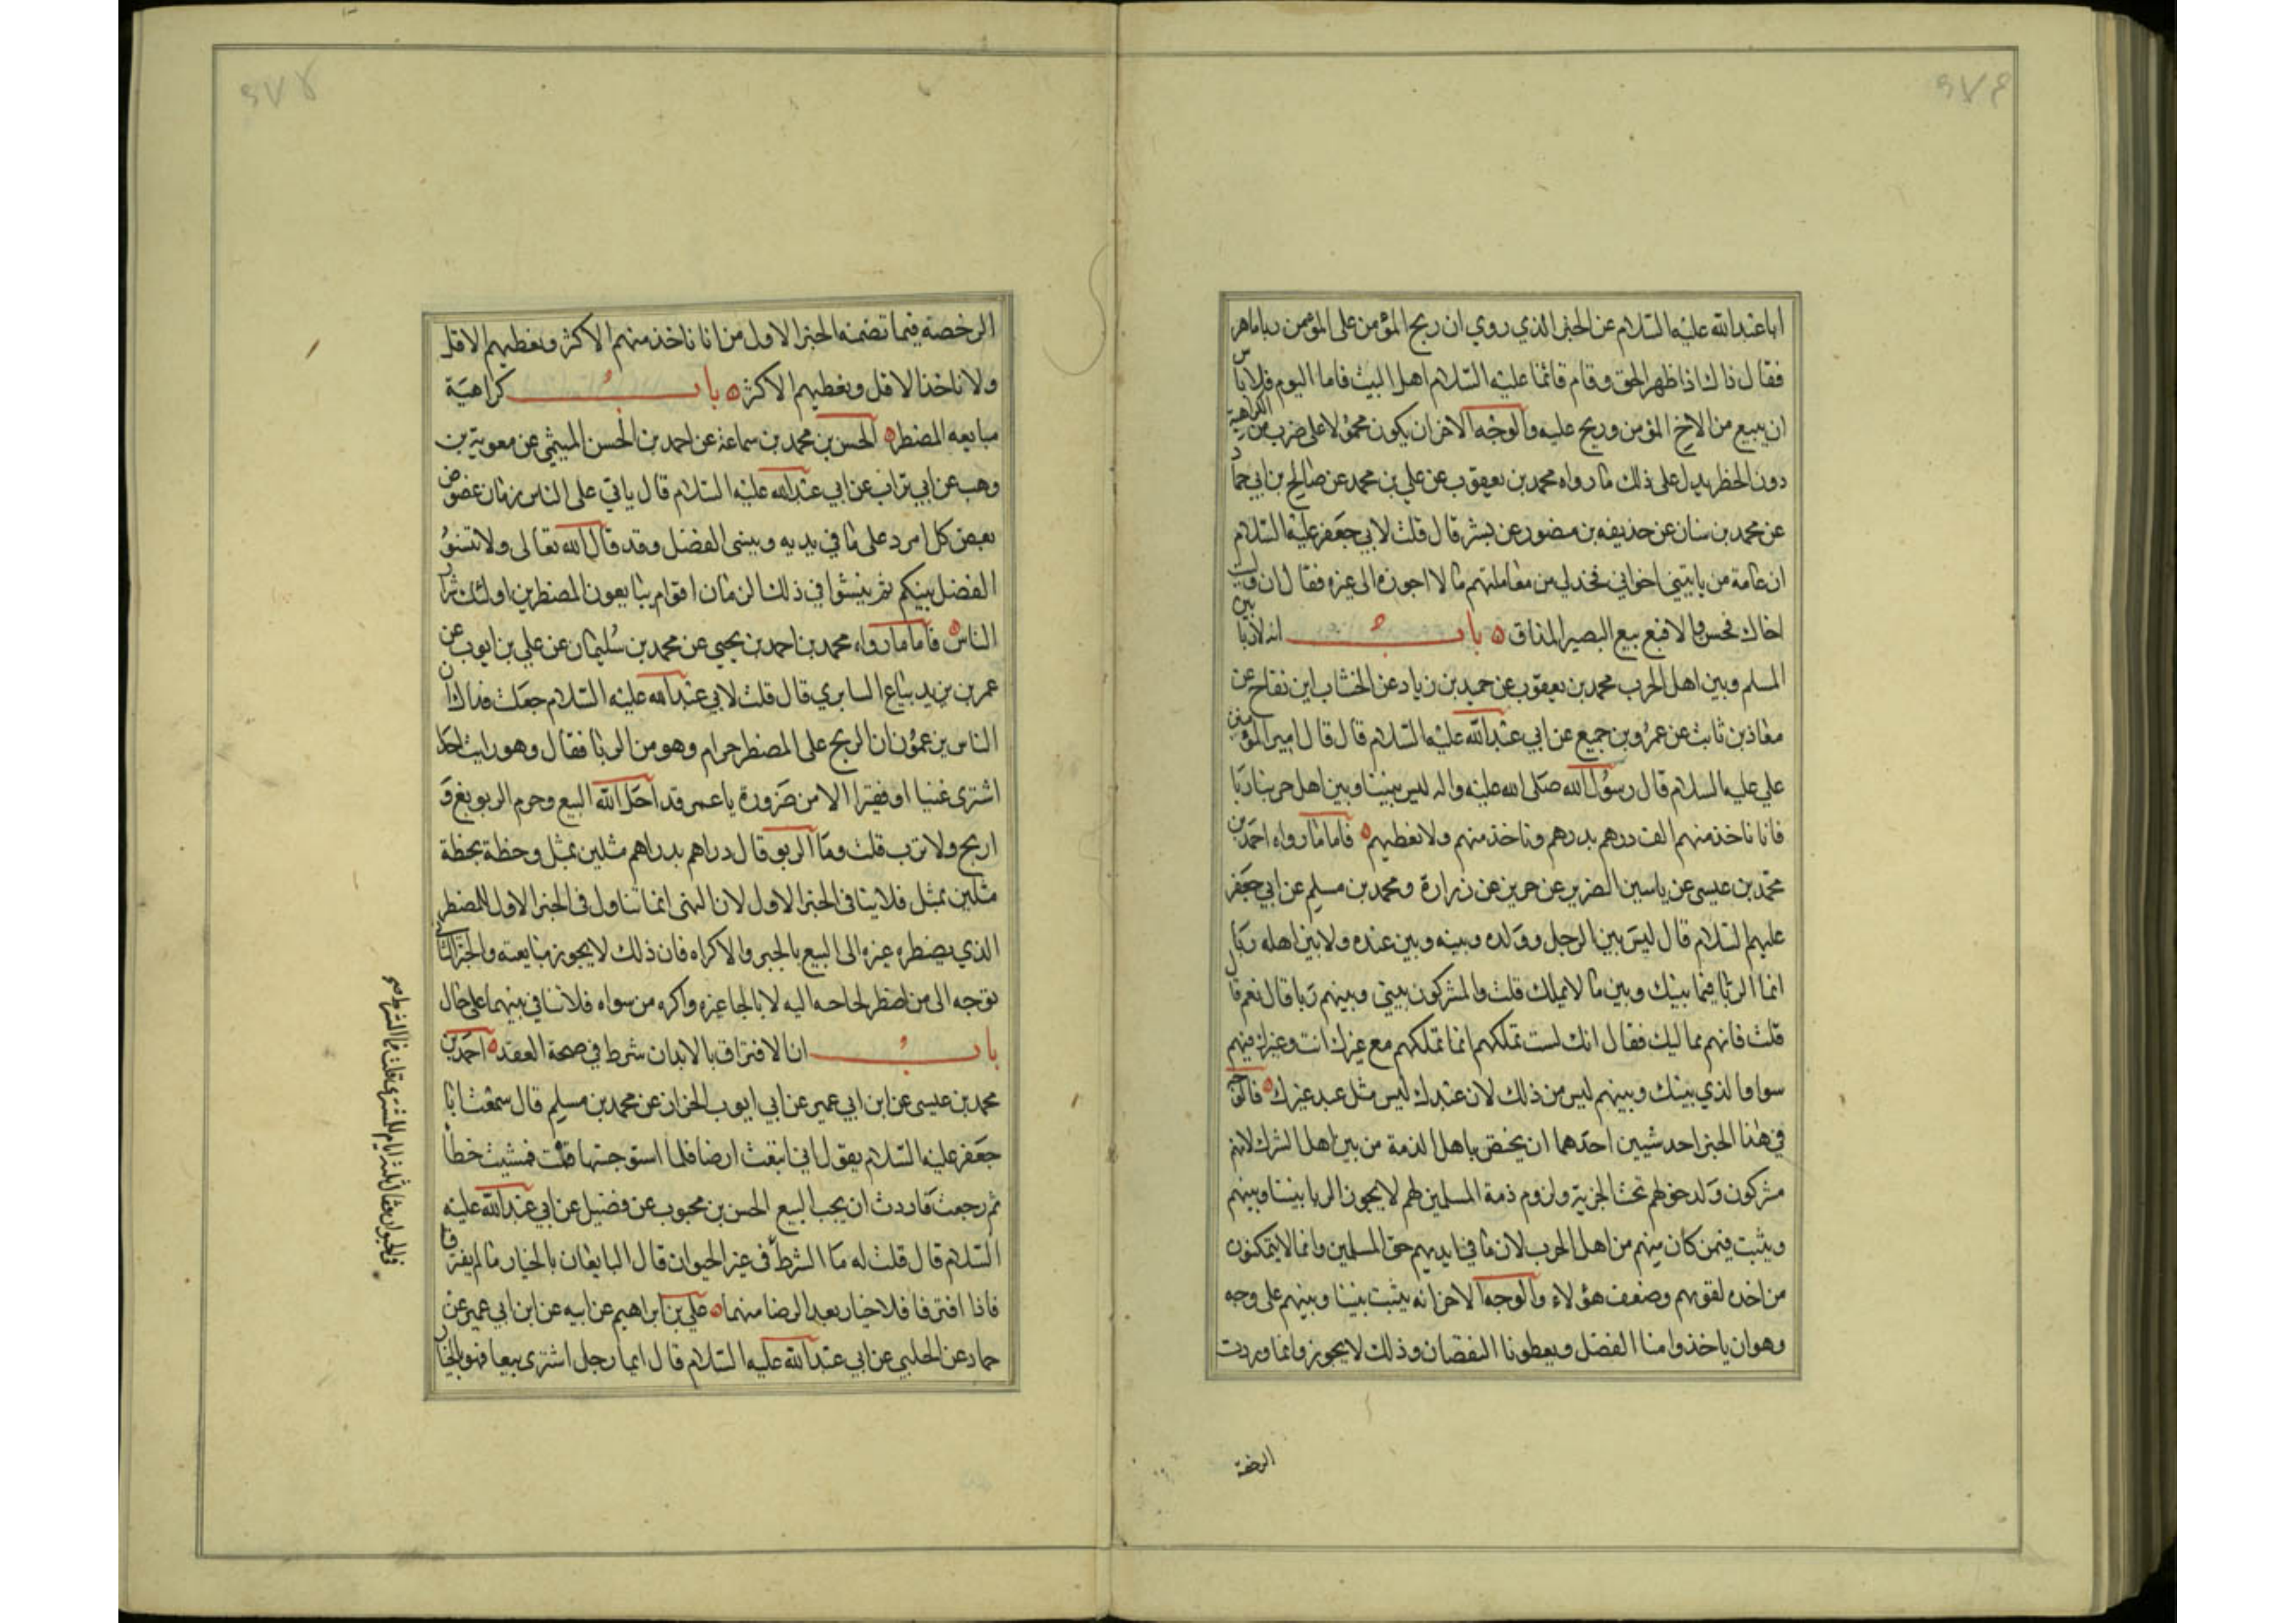 اباعبدالله عليه السلام عن الخبر الذي روي ان ربح المؤمن على المؤمن ربا ما هو
فقال ذاك اذا ظهر الحق وقام قائمنا عليه السلام اهل البيت فاما اليوم فلا باس
ان يبيع من الاخ المؤمن وربح عليه والوجه الاخر ان يكون محمولا على ضرب من الكراهية
دون الحظر يدل على ذلك ما رواه محمد بن يعقوب عن علي بن محمد عن صالح بن ابي حماد
عن محمد بن سنان عن حذيفه بن منصور عن بشر قال قلت لابي جعفر عليه السلام
ان عامة من ياتيني اخواني فحد لي من معاملتهم ما لا اجوزه الى غيره فقال ان وليت
اخاك فحسن والا فبع بيع البصير المذاق باب انه لا ربا بين
المسلم وبين اهل الحرب محمد بن يعقوب عن حميد بن زياد عن الخشاب ابن بقاح عن
معاذ بن ثابت عن عمرو بن جميع عن ابي عبدالله عليه السلام قال قال امير المؤمنين
علي عليه السلام قال رسول الله صلى الله عليه واله ليس بيننا وبين اهل حربنا ربا
فانا ناخذ منهم الف درهم بدرهم وناخذ منهم ولا نعطيهم فاما ما رواه احمد بن
محمد بن عيسى عن ياسين الضرير عن حريز عن زرارة ومحمد بن مسلم عن ابي جعفر
عليهم السلام قال ليس بين الرجل وولده وبينه وبين عبده ولا بين اهله ربا
انما الربا فيما بينك وبين ما لا تملك قلت والمشركون بيني وبينهم ربا قال نعم قال
قلت فانهم مماليك فقال انك لست تملكهم انما تملكهم مع غيرك انت وغيرك فيهم
سوا والذي بينك وبينهم ليس من ذلك لان عبدك ليس مثل عبد غيرك فالوجه
في هذا الخبر احد شيئين احدهما ان يخص باهل الذمة من بين اهل الشرك لانهم
مشركون ولدخولهم تحت الجزية ولزوم ذمة المسلمين لهم لا يجوز الربا بيننا وبينهم
ويثبت فيمن كان منهم من اهل الحرب لان ما في ايديهم حق المسلمين وانما لا يتمكنون
من اخذه لقوتهم وضعف هؤلاء والوجه الاخر انه يثبت بيننا وبينهم على وجه
وهو ان ياخذوا منا الفضل ويعطونا النقصان وذلك لا يجوز وانما وردت
الرخصة
الرخصة فيما تضمنه الخبر الاول من انا ناخذ منهم الاكثر ونعطيهم الاقل
ولا ناخذ الاقل ونعطيهم الاكثر باب كراهية
مبايعه المضطر الحسن بن محمد بن سماعة عن احمد بن الحسن الميثمي عن معوية بن
وهب عن ابي تراب عن ابي عبدالله عليه السلام قال ياتي على الناس زمان عضوض
يعض كل امرء على ما في يديه وينسى الفضل وقد قال الله تعالى ولا تنسوا
الفضل بينكم ثم ينشوا في ذلك الزمان اقوام يبايعون المضطرين اولئك شرار
الناس فاما ما رواه محمد بن احمد بن يحيى عن محمد بن سليمان عن علي بن ايوب عن
عمر بن يزيد بياع السابري قال قلت لابي عبدالله عليه السلام جعلت فداك ان
الناس يزعمون ان الربح على المضطر حرام وهو من الربا فقال وهو رايت احدا
اشترى غنيا او فقيرا الا من ضرورة يا عمر قد احل الله البيع وحرم الربو بع و
اربح ولا ترب قلت وما الربو قال دراهم بدراهم مثلين بمثل وحنطة بحنطة
مثلين بمثل فلا ينافى الخبر الاول لان النهى انما تناول فى الخبر الاول للمضطر
الذي يضطره غيره الى البيع بالجبر والاكراه فان ذلك لا يجوز مبايعته والخبر الثاني
توجه الى من اضطر لحاجه اليه لا بالجاء غيره واكره من سواه فلا تنافي بينهما على حال
باب ان الافتراق بالابدان شرط في صحة العقد احمد بن
محمد بن عيسى عن ابن ابي عمير عن ابي ايوب الخزاز عن محمد بن مسلم قال سمعت ابا
جعفر عليه السلام يقول اني ابتعت ارضا فلما استوجبتها قمت فمشيت خطأ
ثم رجعت فاردت ان يجب البيع الحسن بن محبوب عن فضيل عن ابي عبدالله عليه
السلام قال قلت له ما الشرط فى غير الحيوان قال البايعان بالخيار ما لم يفترقا
فاذا افترقا فلا خيار بعد الرضا منهما علي بن ابراهيم عن ابيه عن ابن ابي عمير عن
حماد عن الحلبي عن ابي عبدالله عليه السلام قال ايما رجل اشترى بيعا فهو بالخيار
في الحيوان فقال ثلثة ايام للمشتري قلت فما الشرط صح